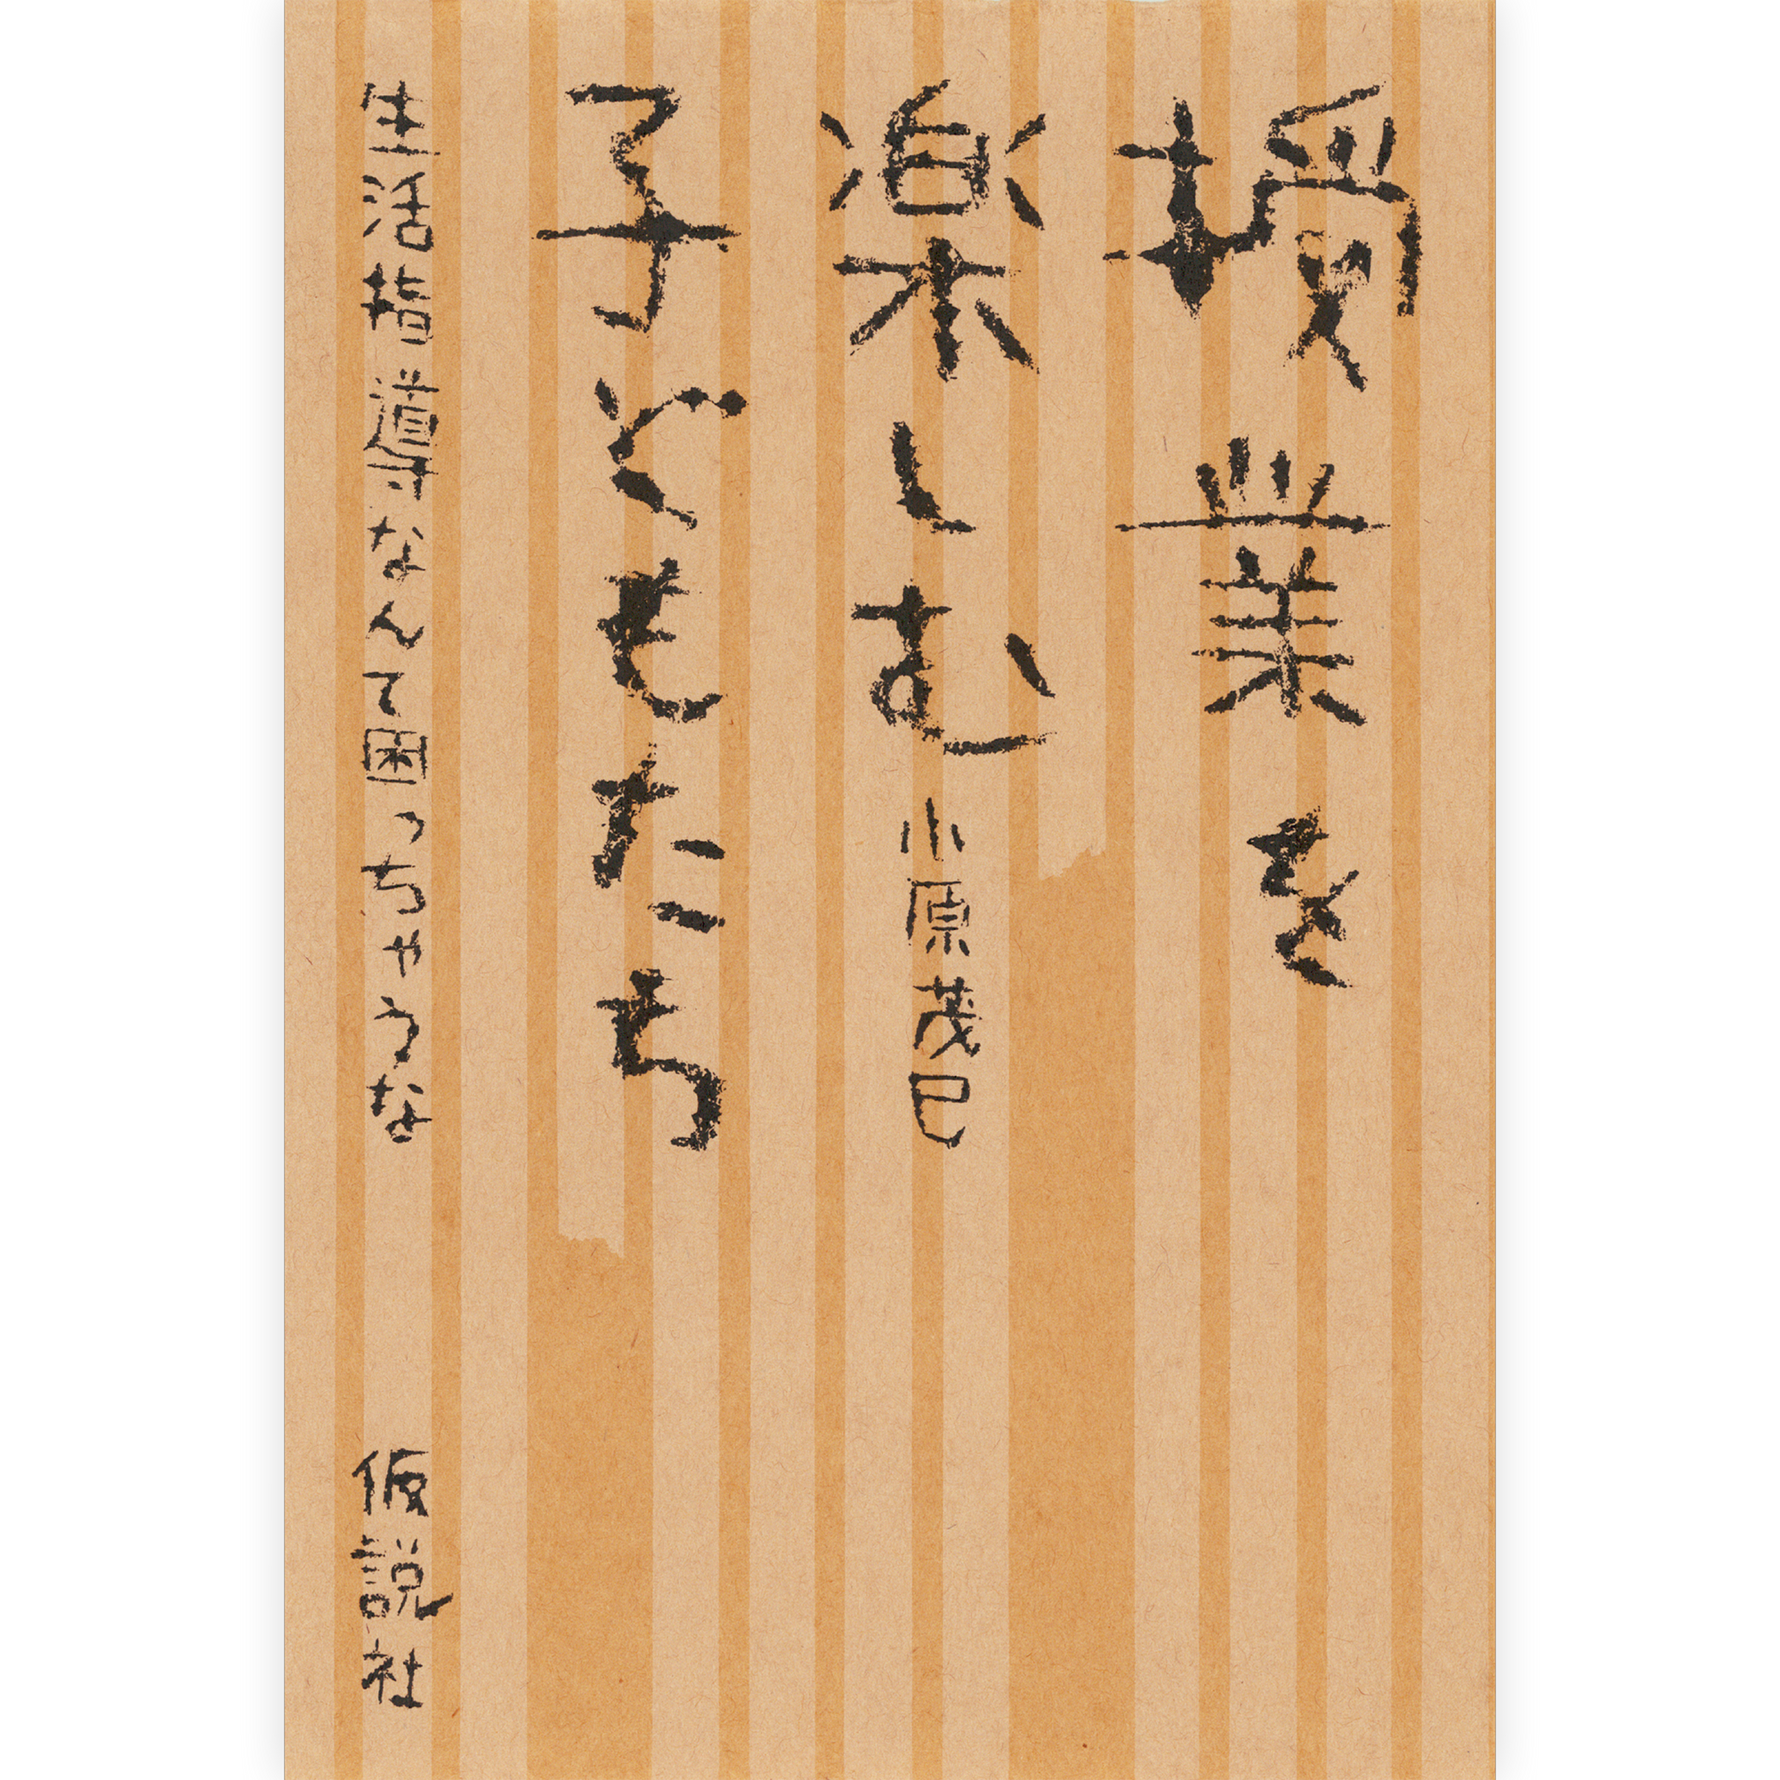 授業を
楽しむ
子どもたち
小原茂巳
生活指導なんて困っちゃうな
仮説社